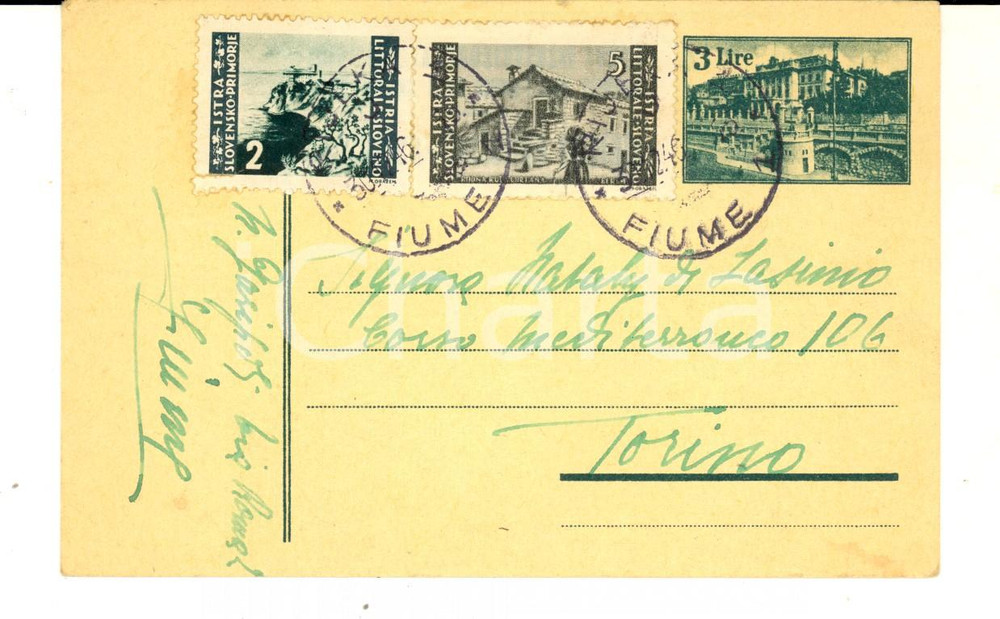 ISTRA
SLOVENSKO-PRIMORJE
ISTRIA
LITTORALE-SLOVENO
2
ISTRA
SLOVENSKO-PRIMORJE
ISTRIA
LITTORALE-SLOVENO
5
3 Lire
FIUME
FIUME
Charta
Signora Nataly di Lasinio
Corso Mediterraneo 106
Torino
Fiume